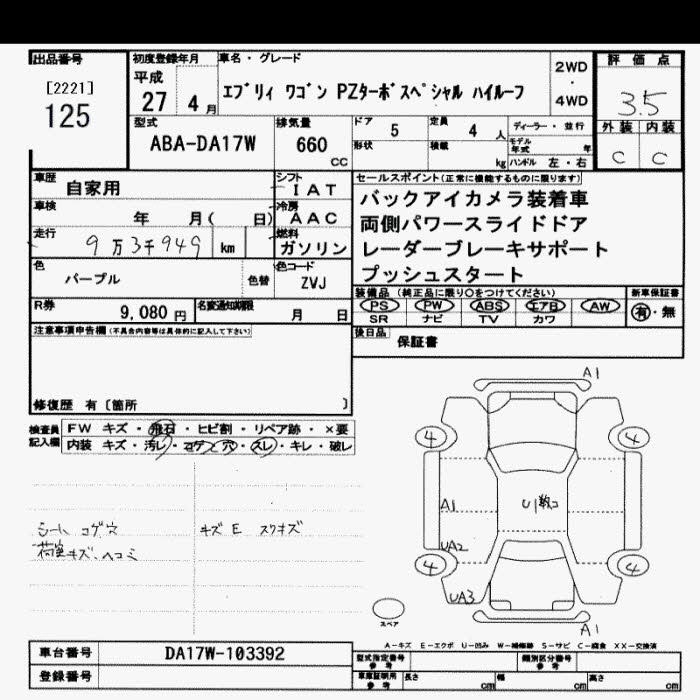 出品番号
[2221]
125
初度登録年月
平成
27 4 月
車名・グレード
エブリィ ワゴン PZターボスペシャル ハイルーフ
2WD
・
4WD
評価点
3.5
外装 内装
C C
型式
ABA-DA17W
排気量
660
CC
ドア
5
定員
4 人
ディーラー・並行
形状
積載
kg
モデル年式
年
ハンドル 左・右
車歴
自家用
シフト
IAT
車検
年 月( 日)
冷房
AAC
走行
9万3千949 km
燃料
ガソリン
色
パープル
色替
色コード
ZVJ
R券
9,080 円
名変通知期限
月 日
セールスポイント(正常に機能するものに限ります)
バックアイカメラ装着車
両側パワースライドドア
レーダーブレーキサポート
プッシュスタート
装備品 (純正品に限り○をつけてください)
新車保証書
PS PW ABS エアB AW
有・無
SR ナビ TV カワ
後日品
保証書
注意事項申告欄(不具合内容等は具体的に記入して下さい)
修復歴 有〔箇所 〕
検査員記入欄
FW キズ・飛石・ヒビ割・リペア跡・×要
内装 キズ・汚レ・コゲ穴・スレ・キレ・破レ
シート コゲ穴
荷室キズ、ヘコミ
キズE スリキズ
A1
4
4
A1
U1数コ
UA2
4
4
UA3
A1
スペア
A-キズ E-エクボ U-凹み W-補修跡 S-サビ C-腐食 XX-交換済
車台番号
DA17W-103392
登録番号
型式指定番号
参考
類別区分番号
参考
車庫証明用
参考
長さ cm
幅 cm
高さ cm